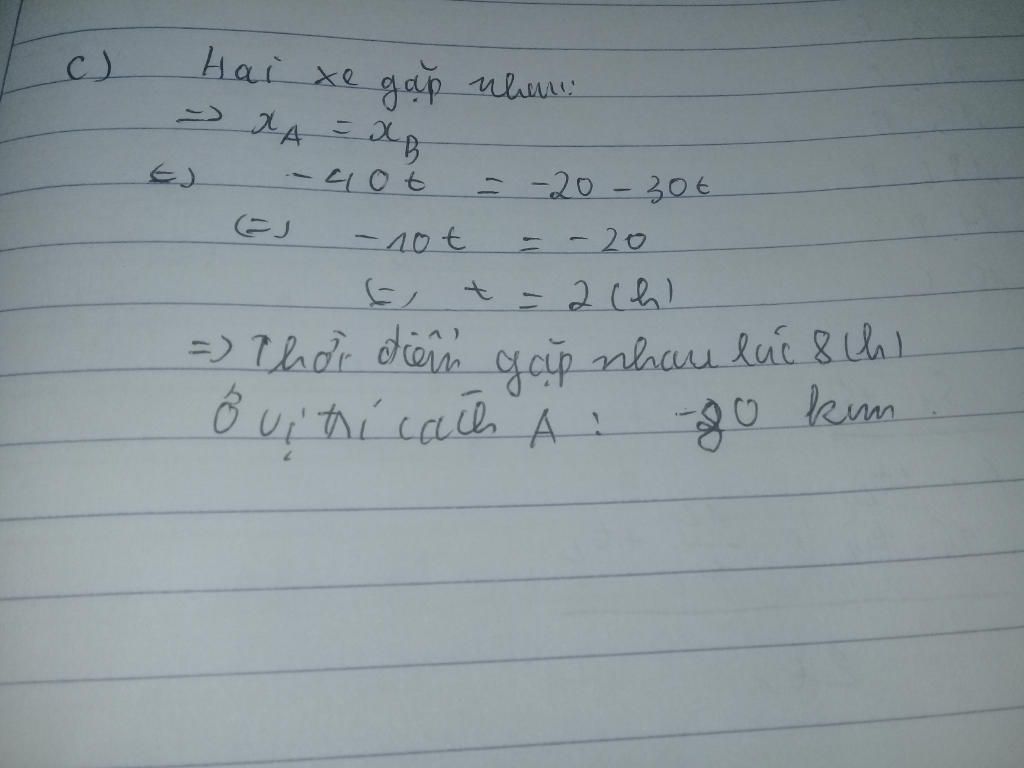 c) Hai xe gặp nhau:
=> x_A = x_B
<=> -40t = -20 - 30t
<=> -10t = -20
<=> t = 2 (h)
=> Thời điểm gặp nhau lúc 8 (h)
Ở vị trí cách A : -80 km.